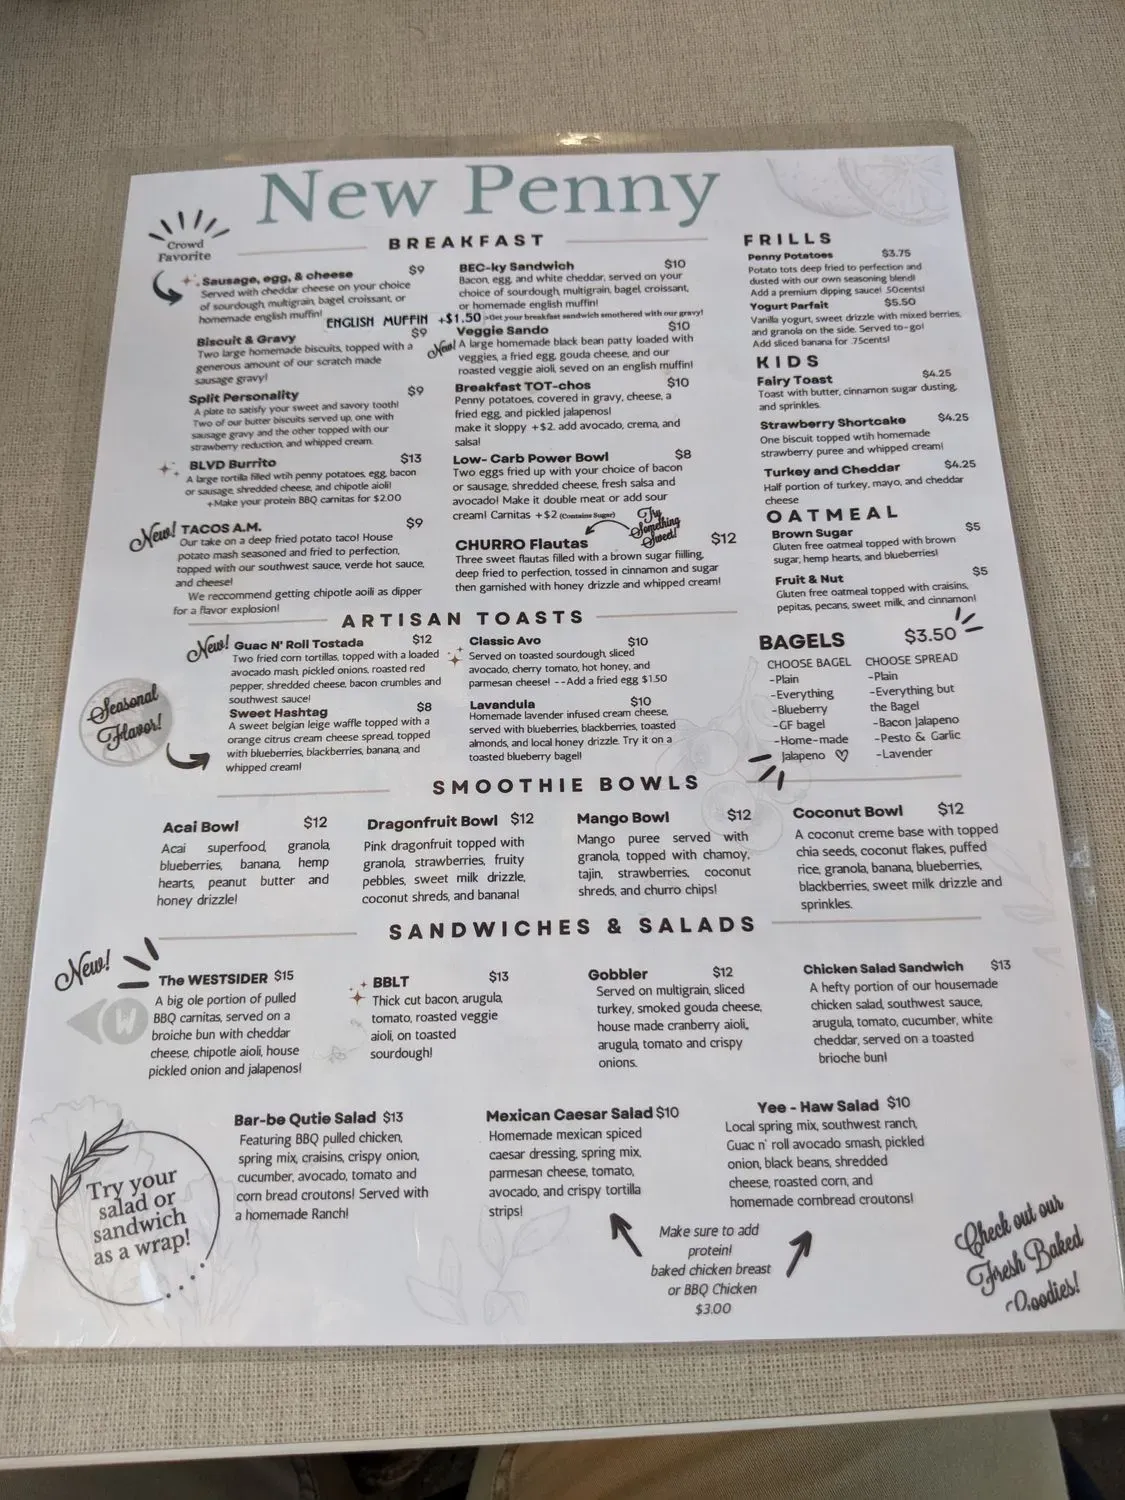 New Penny
Crowd
Favorite
BREAKFAST
Sausage, egg, & cheese $9
Served with cheddar cheese on your choice
of sourdough, multigrain, bagel, croissant, or
homemade english muffin!
ENGLISH MUFFIN +$1.50 >Get your breakfast sandwich smothered with our gravy!
Biscuit & Gravy $9
Two large homemade biscuits, topped with a
generous amount of our scratch made
sausage gravy!
Split Personality $9
A plate to satisfy your sweet and savory tooth!
Two of our butter biscuits served up, one with
sausage gravy and the other topped with our
strawberry reduction, and whipped cream.
BLVD Burrito $13
A large tortilla filled wtih penny potatoes, egg, bacon
or sausage, shredded cheese, and chipotle aioli!
+Make your protein BBQ carnitas for $2.00
New! TACOS A.M. $9
Our take on a deep fried potato taco! House
potato mash seasoned and fried to perfection,
topped with our southwest sauce, verde hot sauce,
and cheese!
We reccommend getting chipotle aoili as dipper
for a flavor explosion!
BEC-ky Sandwich $10
Bacon, egg, and white cheddar, served on your
choice of sourdough, multigrain, bagel, croissant,
or homemade english muffin!
Veggie Sando $10
New! A large homemade black bean patty loaded with
veggies, a fried egg, gouda cheese, and our
roasted veggie aioli, seved on an english muffin!
Breakfast TOT-chos $10
Penny potatoes, covered in gravy, cheese, a
fried egg, and pickled jalapenos!
make it sloppy +$2. add avocado, crema, and
salsa!
Low- Carb Power Bowl $8
Two eggs fried up with your choice of bacon
or sausage, shredded cheese, fresh salsa and
avocado! Make it double meat or add sour
cream! Carnitas +$2 (Contains Sugar)
Try
Something
Sweet!
CHURRO Flautas $12
Three sweet flautas filled with a brown sugar fiilling,
deep fried to perfection, tossed in cinnamon and sugar
then garnished with honey drizzle and whipped cream!
FRILLS
Penny Potatoes $3.75
Potato tots deep fried to perfection and
dusted with our own seasoning blend!
Add a premium dipping sauce! .50cents!
Yogurt Parfait $5.50
Vanilla yogurt, sweet drizzle with mixed berries,
and granola on the side. Served to-go!
Add sliced banana for .75cents!
KIDS
Fairy Toast $4.25
Toast with butter, cinnamon sugar dusting,
and sprinkles.
Strawberry Shortcake $4.25
One biscuit topped wtih homemade
strawberry puree and whipped cream!
Turkey and Cheddar $4.25
Half portion of turkey, mayo, and cheddar
cheese
OATMEAL
Brown Sugar $5
Gluten free oatmeal topped with brown
sugar, hemp hearts, and blueberries!
Fruit & Nut $5
Gluten free oatmeal topped with craisins,
pepitas, pecans, sweet milk, and cinnamon!
ARTISAN TOASTS
New! Guac N' Roll Tostada $12
Two fried corn tortillas, topped with a loaded
avocado mash, pickled onions, roasted red
pepper, shredded cheese, bacon crumbles and
southwest sauce!
Seasonal
Flavor!
Sweet Hashtag $8
A sweet belgian leige waffle topped with a
orange citrus cream cheese spread, topped
with blueberries, blackberries, banana, and
whipped cream!
Classic Avo $10
Served on toasted sourdough, sliced
avocado, cherry tomato, hot honey, and
parmesan cheese! --Add a fried egg $1.50
Lavandula $10
Homemade lavender infused cream cheese,
served with blueberries, blackberries, toasted
almonds, and local honey drizzle. Try it on a
toasted blueberry bagel!
BAGELS $3.50
CHOOSE BAGEL
-Plain
-Everything
-Blueberry
-GF bagel
-Home-made
Jalapeno
CHOOSE SPREAD
-Plain
-Everything but
the Bagel
-Bacon Jalapeno
-Pesto & Garlic
-Lavender
SMOOTHIE BOWLS
Acai Bowl $12
Acai superfood, granola,
blueberries, banana, hemp
hearts, peanut butter and
honey drizzle!
Dragonfruit Bowl $12
Pink dragonfruit topped with
granola, strawberries, fruity
pebbles, sweet milk drizzle,
coconut shreds, and banana!
Mango Bowl $12
Mango puree served with
granola, topped with chamoy,
tajin, strawberries, coconut
shreds, and churro chips!
Coconut Bowl $12
A coconut creme base with topped
chia seeds, coconut flakes, puffed
rice, granola, banana, blueberries,
blackberries, sweet milk drizzle and
sprinkles.
SANDWICHES & SALADS
New!
The WESTSIDER $15
A big ole portion of pulled
BBQ carnitas, served on a
broiche bun with cheddar
cheese, chipotle aioli, house
pickled onion and jalapenos!
W
BBLT $13
Thick cut bacon, arugula,
tomato, roasted veggie
aioli, on toasted
sourdough!
Gobbler $12
Served on multigrain, sliced
turkey, smoked gouda cheese,
house made cranberry aioli,
arugula, tomato and crispy
onions.
Chicken Salad Sandwich $13
A hefty portion of our housemade
chicken salad, southwest sauce,
arugula, tomato, cucumber, white
cheddar, served on a toasted
brioche bun!
Try your
salad or
sandwich
as a wrap!
Bar-be Qutie Salad $13
Featuring BBQ pulled chicken,
spring mix, craisins, crispy onion,
cucumber, avocado, tomato and
corn bread croutons! Served with
a homemade Ranch!
Mexican Caesar Salad $10
Homemade mexican spiced
caesar dressing, spring mix,
parmesan cheese, tomato,
avocado, and crispy tortilla
strips!
Yee - Haw Salad $10
Local spring mix, southwest ranch,
Guac n' roll avocado smash, pickled
onion, black beans, shredded
cheese, roasted corn, and
homemade cornbread croutons!
Make sure to add
protein!
baked chicken breast
or BBQ Chicken
$3.00
Check out our
Fresh Baked
Goodies!